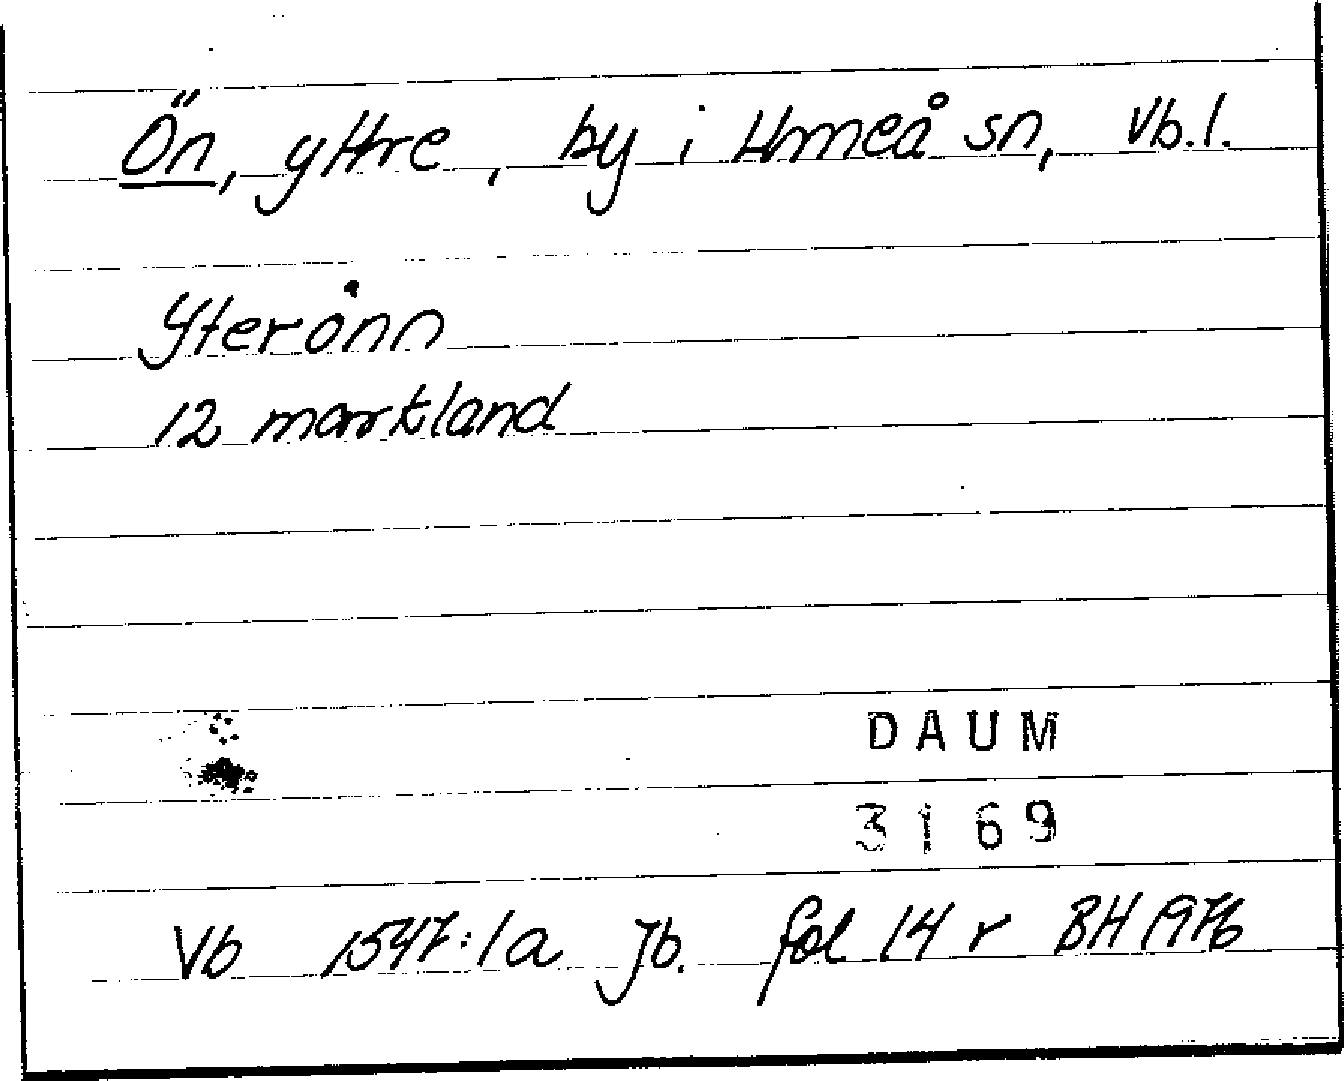 Ön, yttre, by i Umeå sn, Vb.l.
Yterȯnn
12 markland
DAUM
3169
Vb 1547:1a Jb. fol 14 r BH 1976